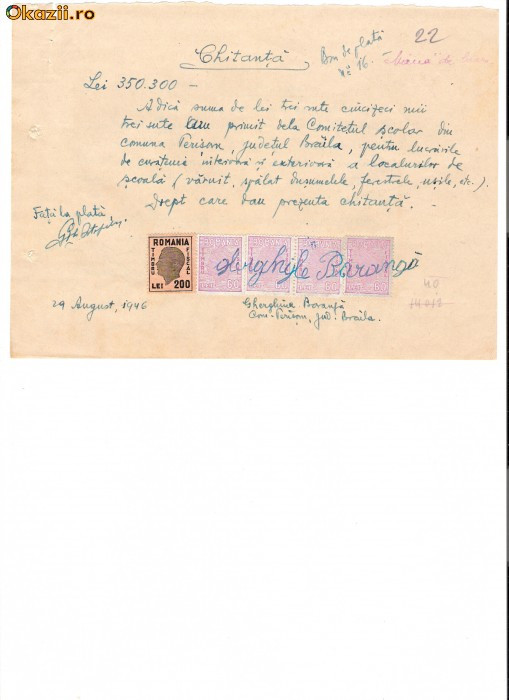 Okazii.ro
22
Bon de plată
No 16.
Chitanță
Lei 350.300 –
Adică suma de lei trei sute cincizeci mii
trei sute am primit dela Comitetul școlar din
comuna Perișoru, județul Brăila, pentru lucrările
de curățenie interioară și exterioară a localurilor de
școală (văruit, spălat dușumelele, ferestrele, ușile, etc.).
Drept care dau prezenta chitanță.
Făți la plată
ROMANIA
TIMBRU FISCAL
LEI 200
ROMANIA ROMANIA ROMANIA
60 60 60 60
Gherghile Boranğă
40
29 August, 1946
Gherghina Boranță
Com. Perișoru, Jud. Brăila.